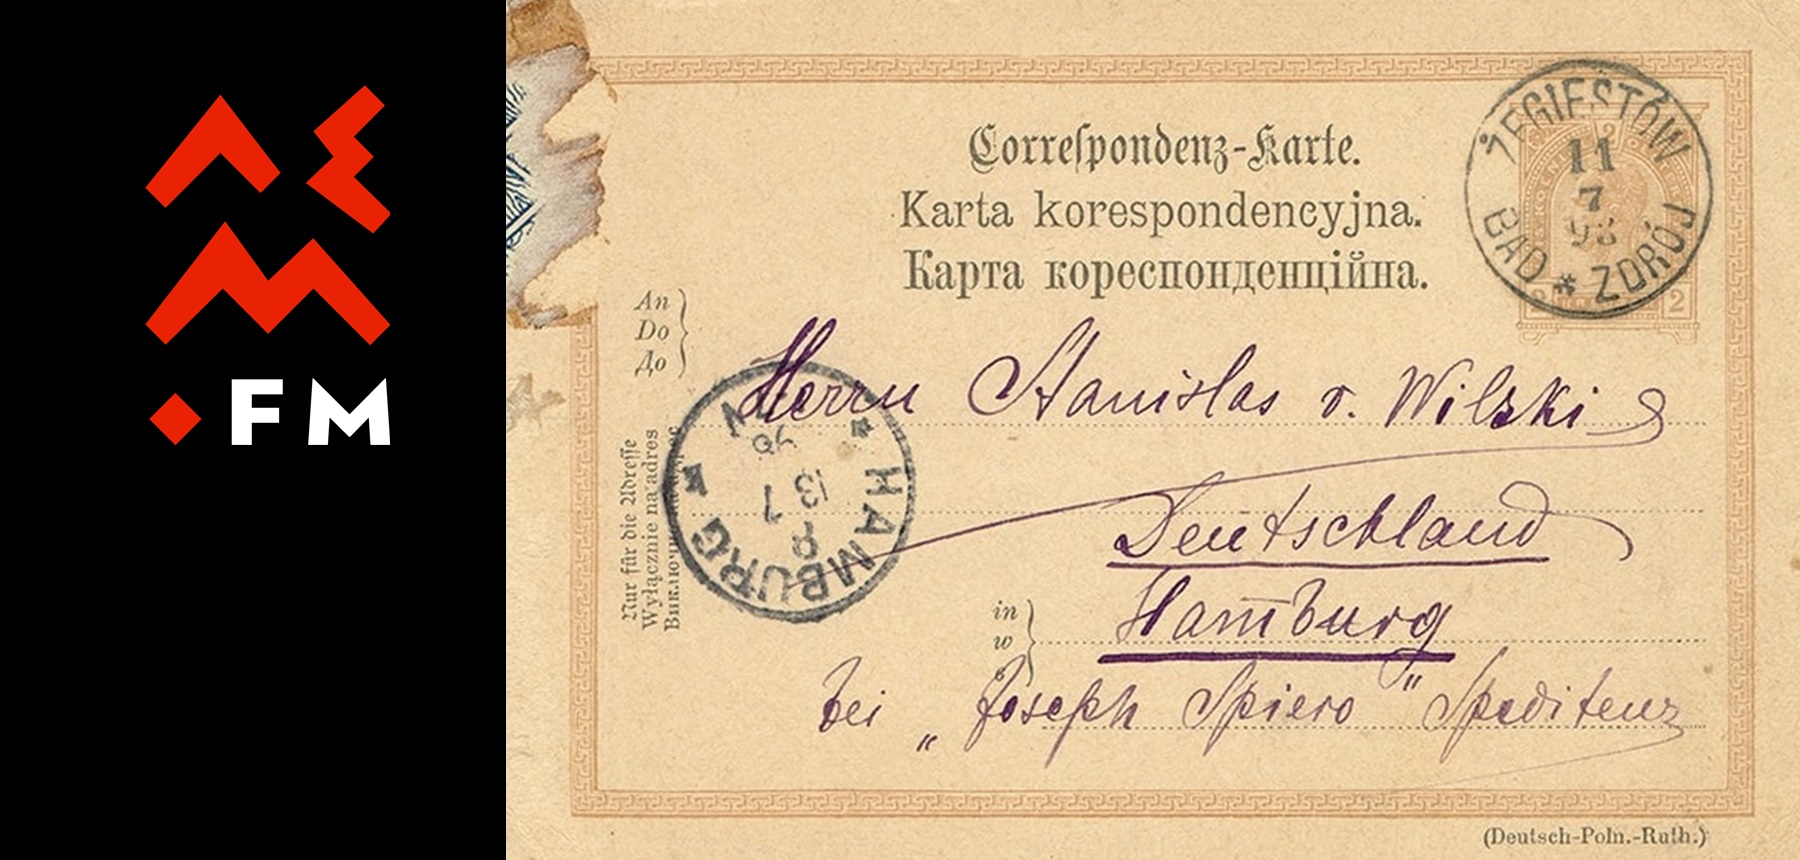 ЛЕ
М
.FM
Correspondenz-Karte.
Karta korespondencyjna.
Карта кореспонденційна.
ŻEGIESTÓW
11
7
BAD * ZDRÓJ
2 2
An
Do
До
Herrn Stanislas v. Wilski
Deutschland
Hamburg
in
w
в
bei „Joseph Spiero" Spediteur
HAMBURG
13 7
Nur für die Adresse
Wyłącznie na adres
Виключно на адрес
(Deutsch-Poln.-Ruth.)